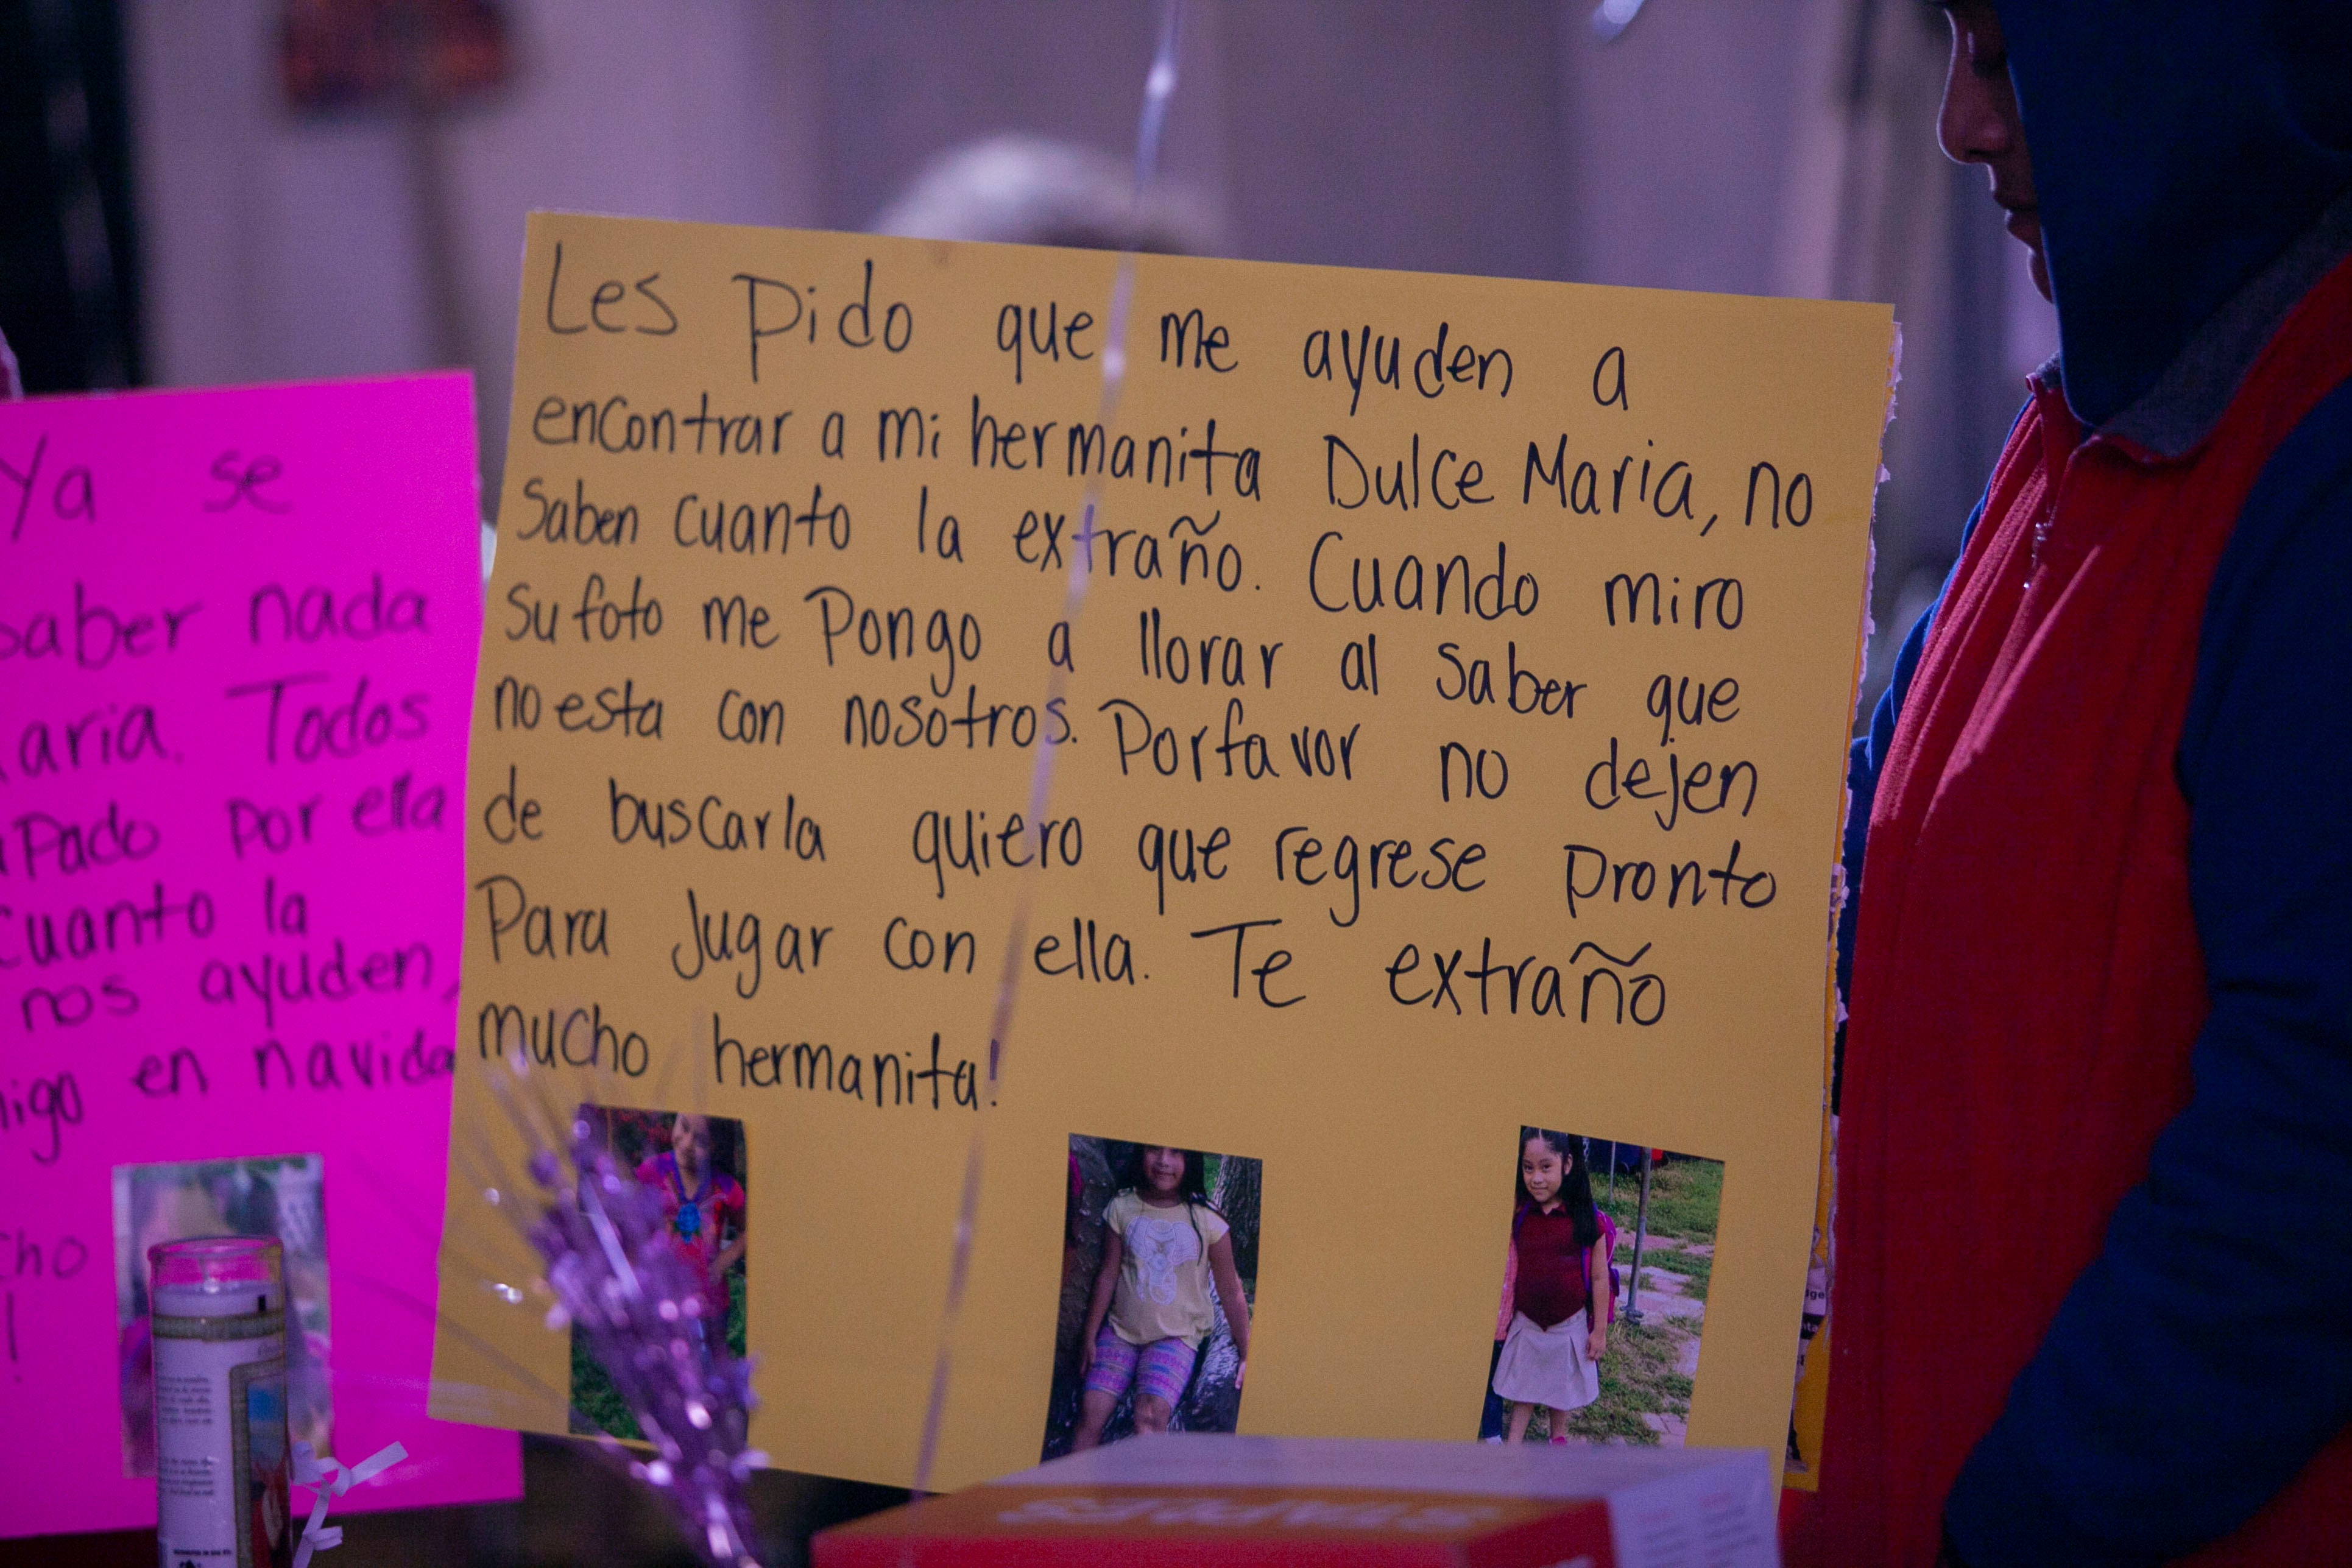 Les pido que me ayuden a
encontrar a mi hermanita Dulce Maria, no
Saben cuanto la extraño. Cuando miro
Su foto me Pongo a llorar al Saber que
no esta con nosotros. Porfavor no dejen
de buscarla quiero que regrese pronto
Para Jugar con ella. Te extraño
mucho hermanita!
Ya se
saber nada
aria. Todos
Pado por ella
cuanto la
nos ayuden,
migo en navida
cho
!